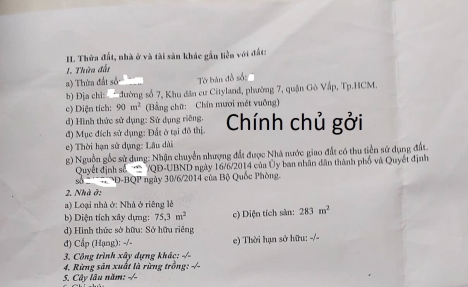 II. Thửa đất, nhà ở và tài sản khác gắn liền với đất:
1. Thửa đất
a) Thửa đất số Tờ bản đồ số:
b) Địa chỉ: đường số 7, Khu dân cư Cityland, phường 7, quận Gò Vấp, Tp.HCM.
c) Diện tích: 90 m² (Bằng chữ: Chín mươi mét vuông)
d) Hình thức sử dụng: Sử dụng riêng.
đ) Mục đích sử dụng: Đất ở tại đô thị.
Chính chủ gởi
e) Thời hạn sử dụng: Lâu dài
g) Nguồn gốc sử dụng: Nhận chuyển nhượng đất được Nhà nước giao đất có thu tiền sử dụng đất.
Quyết định số /QĐ-UBND ngày 16/6/2014 của Ủy ban nhân dân thành phố và Quyết định
số Đ-BQP ngày 30/6/2014 của Bộ Quốc Phòng.
2. Nhà ở:
a) Loại nhà ở: Nhà ở riêng lẻ
b) Diện tích xây dựng: 75,3 m² c) Diện tích sàn: 283 m²
d) Hình thức sở hữu: Sở hữu riêng
đ) Cấp (Hạng): -/- e) Thời hạn sở hữu: -/-
3. Công trình xây dựng khác: -/-
4. Rừng sản xuất là rừng trồng: -/-
5. Cây lâu năm: -/-